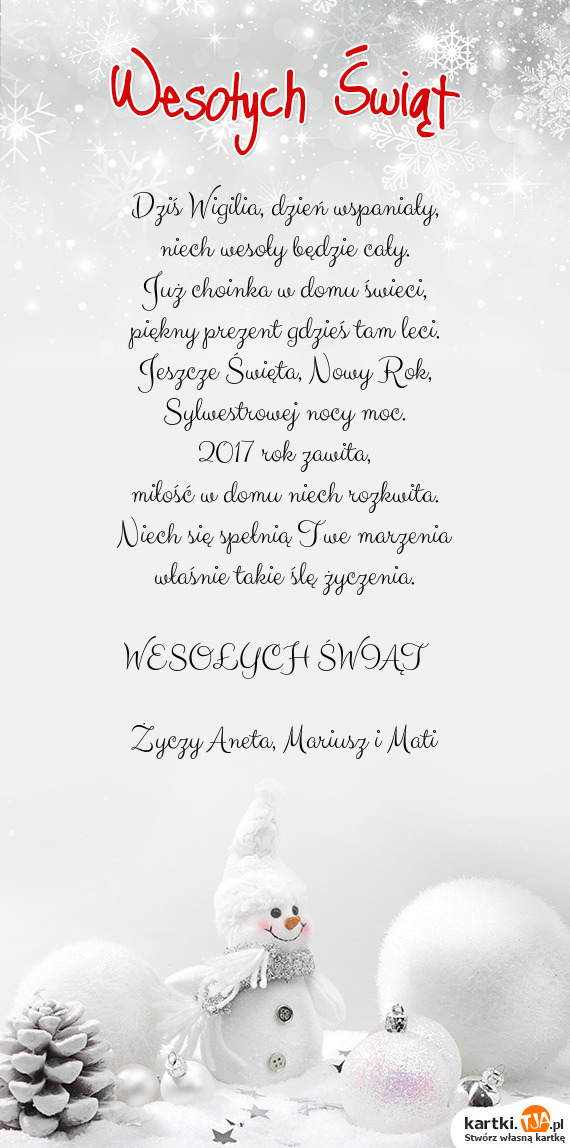 Wesołych Świąt
Dziś Wigilia, dzień wspaniały,
niech wesoły będzie cały.
Już choinka w domu świeci,
piękny prezent gdzieś tam leci.
Jeszcze Święta, Nowy Rok,
Sylwestrowej nocy moc.
2017 rok zawita,
miłość w domu niech rozkwita.
Niech się spełnią Twe marzenia
właśnie takie ślę życzenia.
WESOŁYCH ŚWIĄT
Życzy Aneta, Mariusz i Mati
kartki.TJA.pl
Stwórz własną kartkę